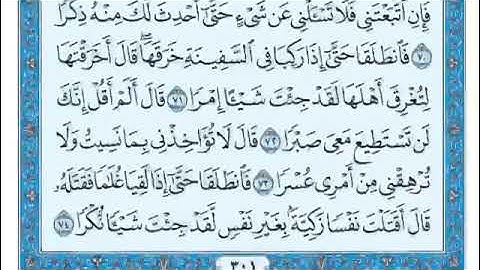 فَإِنِ ٱتَّبَعْتَنِى فَلَا تَسْـَٔلْنِى عَن شَىْءٍ حَتَّىٰٓ أُحْدِثَ لَكَ مِنْهُ ذِكْرًا
٧٠ فَٱنطَلَقَا حَتَّىٰٓ إِذَا رَكِبَا فِى ٱلسَّفِينَةِ خَرَقَهَا ۖ قَالَ أَخَرَقْتَهَا
لِتُغْرِقَ أَهْلَهَا لَقَدْ جِئْتَ شَيْـًٔا إِمْرًا ٧١ قَالَ أَلَمْ أَقُلْ إِنَّكَ
لَن تَسْتَطِيعَ مَعِىَ صَبْرًا ٧٢ قَالَ لَا تُؤَاخِذْنِى بِمَا نَسِيتُ وَلَا
تُرْهِقْنِى مِنْ أَمْرِى عُسْرًا ٧٣ فَٱنطَلَقَا حَتَّىٰٓ إِذَا لَقِيَا غُلَـٰمًا فَقَتَلَهُۥ
قَالَ أَقَتَلْتَ نَفْسًا زَكِيَّةًۢ بِغَيْرِ نَفْسٍ لَّقَدْ جِئْتَ شَيْـًٔا نُّكْرًا ٧٤
٣٠١